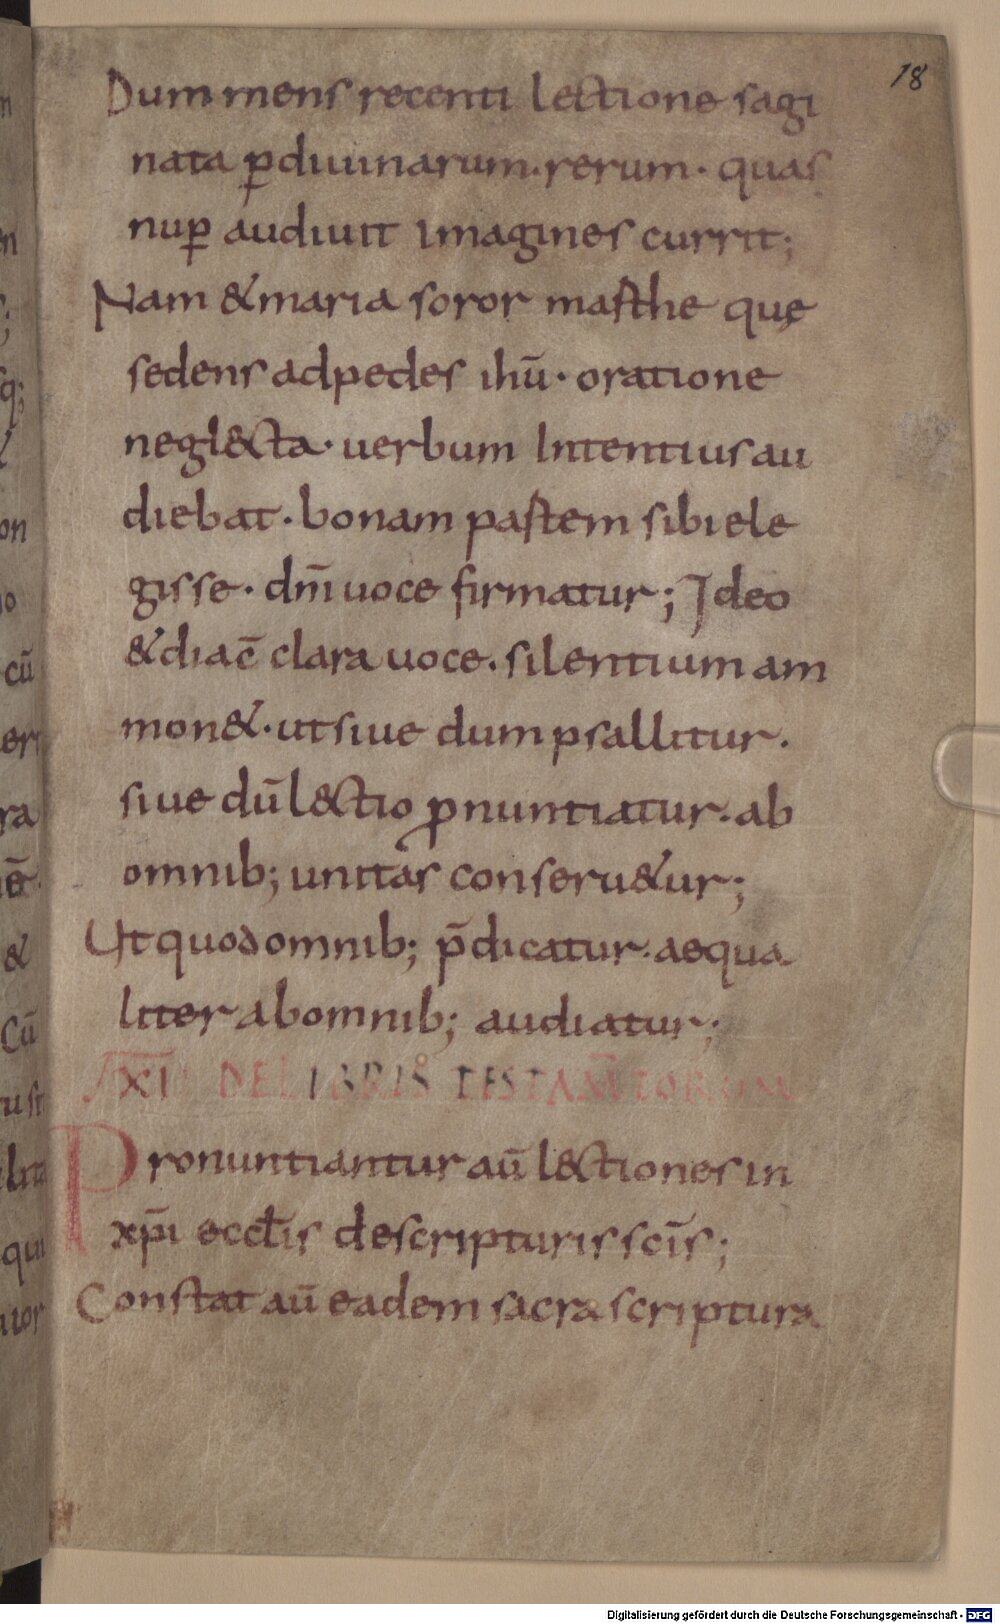 18
Dum mens recenti lectione sagi
nata ꝑ diuinarum · rerum · quas
nuꝑ audiuit imagines currit;
Nam & maria soror marthe quę
sedens ad pedes ihū · oratione
negl&cta · uerbum intentius au
diebat · bonam partem sibi ele
gisse · dn̄i uoce firmatur; Ideo
& diac̄ clara uoce · silentium am
mon& · ut siue dum psallitur ·
siue dū l&ctio ꝓnuntiatur · ab
omnib; unitas conseru&ur;
Ut quod omnib; p̄dicatur · aequa
liter ab omnib; audiatur;
XI DE LIBRIS TESTAM̄TORUM
Pronuntiantur aū l&ctiones in
xp̄i eccl̄is de scripturis sc̄is;
Constat aū eadem sacra scriptura
Digitalisierung gefördert durch die Deutsche Forschungsgemeinschaft - DFG